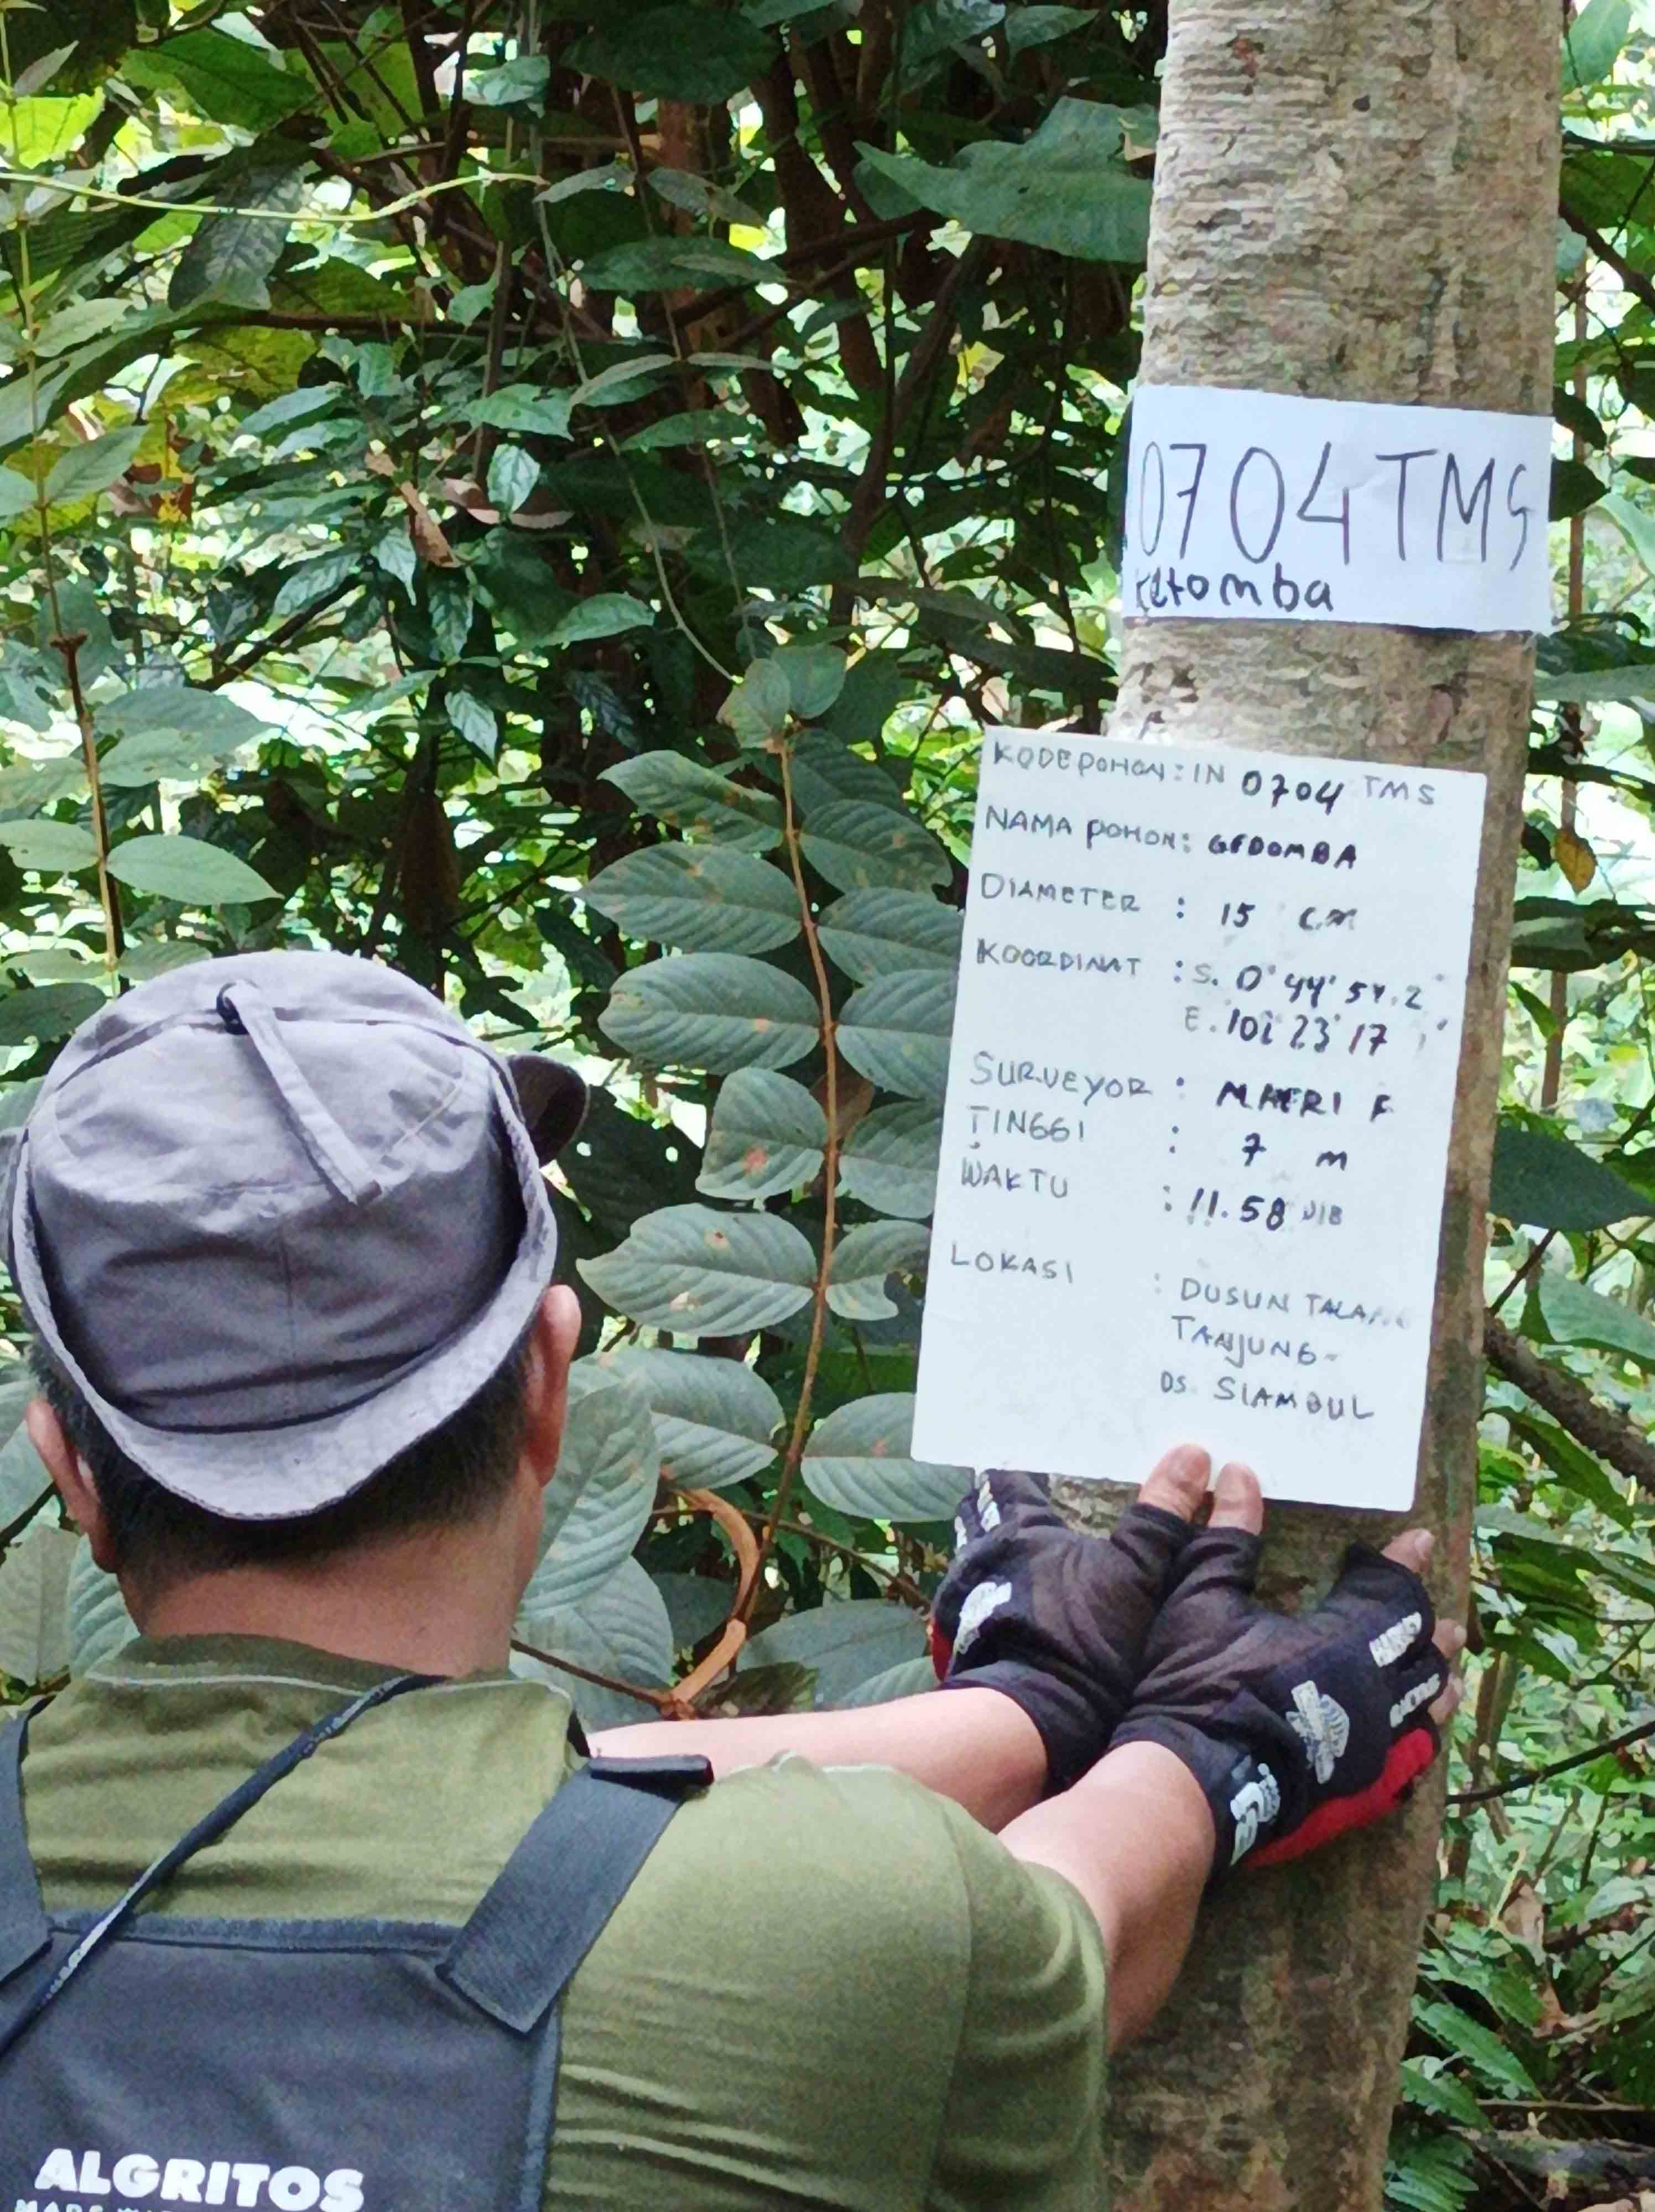 0704TMS
ketomba
KODE POHON : IN 0704 TMS
NAMA POHON : GEDOMBA
DIAMETER : 15 CM
KOORDINAT : S. 0° 44' 54.2"
E. 102° 23' 17"
SURVEYOR : MAERI F
TINGGI : 7 M
WAKTU : 11.58 WIB
LOKASI : DUSUN TALANG
TANJUNG-
DS. SIAMBUL
ALGRITOS